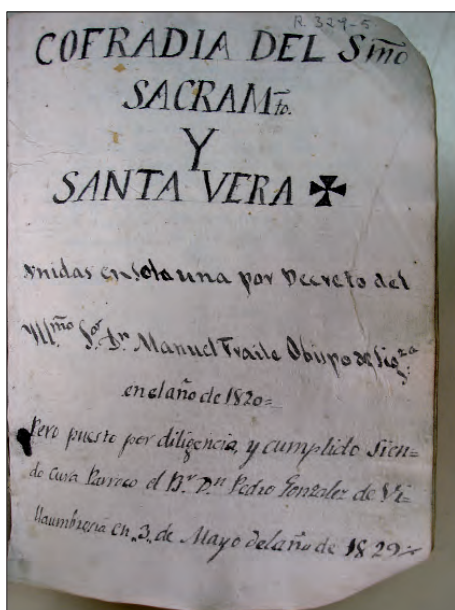 R. 329-5
COFRADIA DEL Smõ
SACRAMto.
Y
SANTA VERA ✠
unidas en sola una por Decreto del
Yllmõ Sor. Dn. Manuel Fraile Obispo de Sigza.
en el año de 1820=
Pero puesto por diligencia, y cumplido sien=
do cura Parroco el Br. Dn. Pedro Gonzalez de Vi=
llaumbrosia en "3" de Mayo del año de 1829=